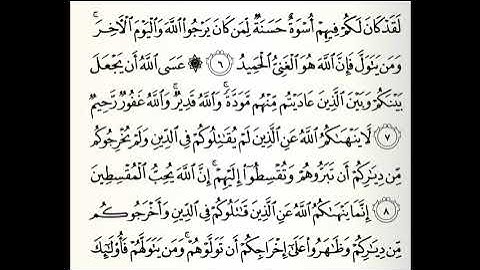 لَقَدْ كَانَ لَكُمْ فِيهِمْ أُسْوَةٌ حَسَنَةٌ لِّمَن كَانَ يَرْجُوا۟ ٱللَّهَ وَٱلْيَوْمَ ٱلْءَاخِرَ ۚ
وَمَن يَتَوَلَّ فَإِنَّ ٱللَّهَ هُوَ ٱلْغَنِىُّ ٱلْحَمِيدُ ٦ ۞ عَسَى ٱللَّهُ أَن يَجْعَلَ
بَيْنَكُمْ وَبَيْنَ ٱلَّذِينَ عَادَيْتُم مِّنْهُم مَّوَدَّةً ۚ وَٱللَّهُ قَدِيرٌ ۚ وَٱللَّهُ غَفُورٌ رَّحِيمٌ
٧ لَّا يَنْهَىٰكُمُ ٱللَّهُ عَنِ ٱلَّذِينَ لَمْ يُقَـٰتِلُوكُمْ فِى ٱلدِّينِ وَلَمْ يُخْرِجُوكُم
مِّن دِيَـٰرِكُمْ أَن تَبَرُّوهُمْ وَتُقْسِطُوٓا۟ إِلَيْهِمْ ۚ إِنَّ ٱللَّهَ يُحِبُّ ٱلْمُقْسِطِينَ
٨ إِنَّمَا يَنْهَىٰكُمُ ٱللَّهُ عَنِ ٱلَّذِينَ قَـٰتَلُوكُمْ فِى ٱلدِّينِ وَأَخْرَجُوكُم
مِّن دِيَـٰرِكُمْ وَظَـٰهَرُوا۟ عَلَىٰٓ إِخْرَاجِكُمْ أَن تَوَلَّوْهُمْ ۚ وَمَن يَتَوَلَّهُمْ فَأُو۟لَـٰٓئِكَ